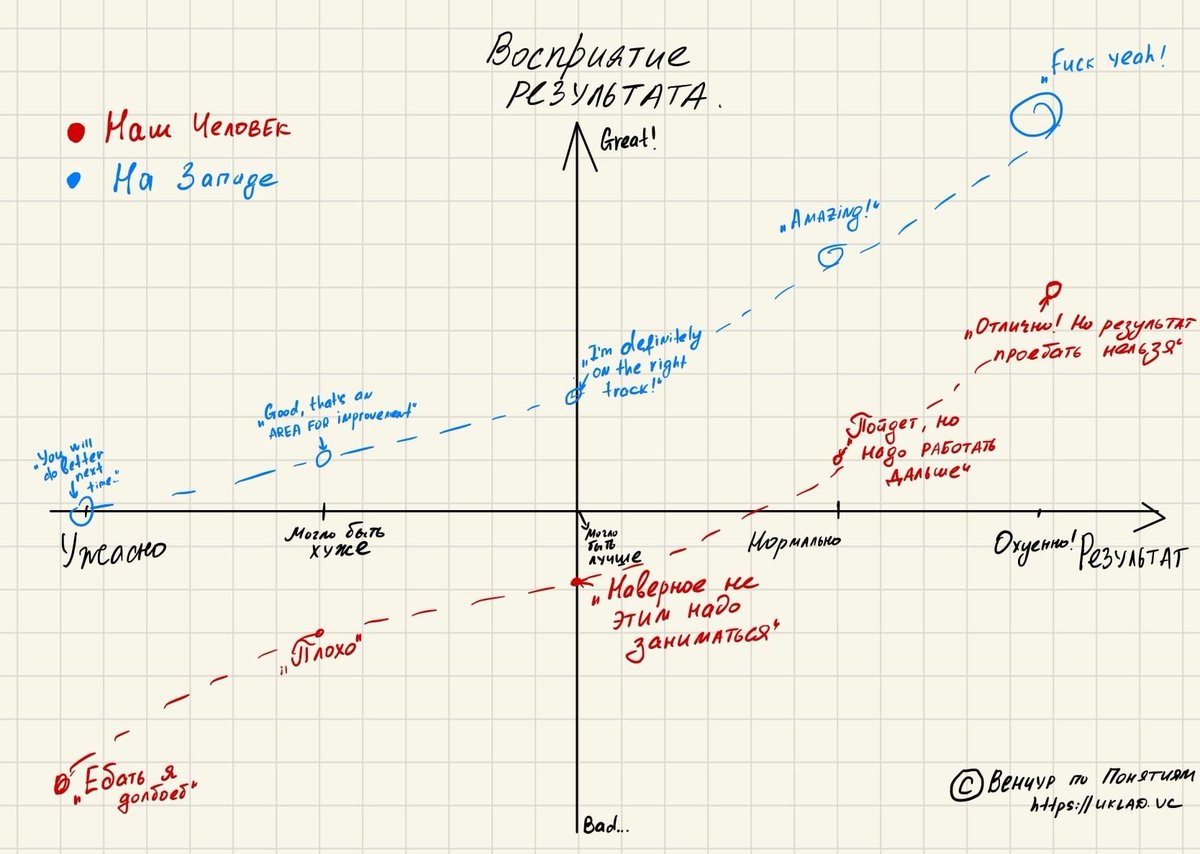 Восприятие
РЕЗУЛЬТАТА.
Наш Человек
На Западе
Great!
„Fuck yeah!
„Amazing!“
„I'm definitely
on the right
track!“
„Good, that's an
AREA FOR improvement“
„You will
do better
next
time..“
„Отлично! Но результат
проебать нельзя“
„Пойдет, но
надо РАБОТАТЬ
дальше“
Ужасно
Могло быть
хуже
Могло
быть
лучше
Нормально
Охуенно!
РЕЗУЛЬТАТ
„Наверное не
этим надо
заниматься“
„Плохо“
„Ебать я
долбоеб“
Bad...
© Венчур по Понятиям
https://uklad.vc